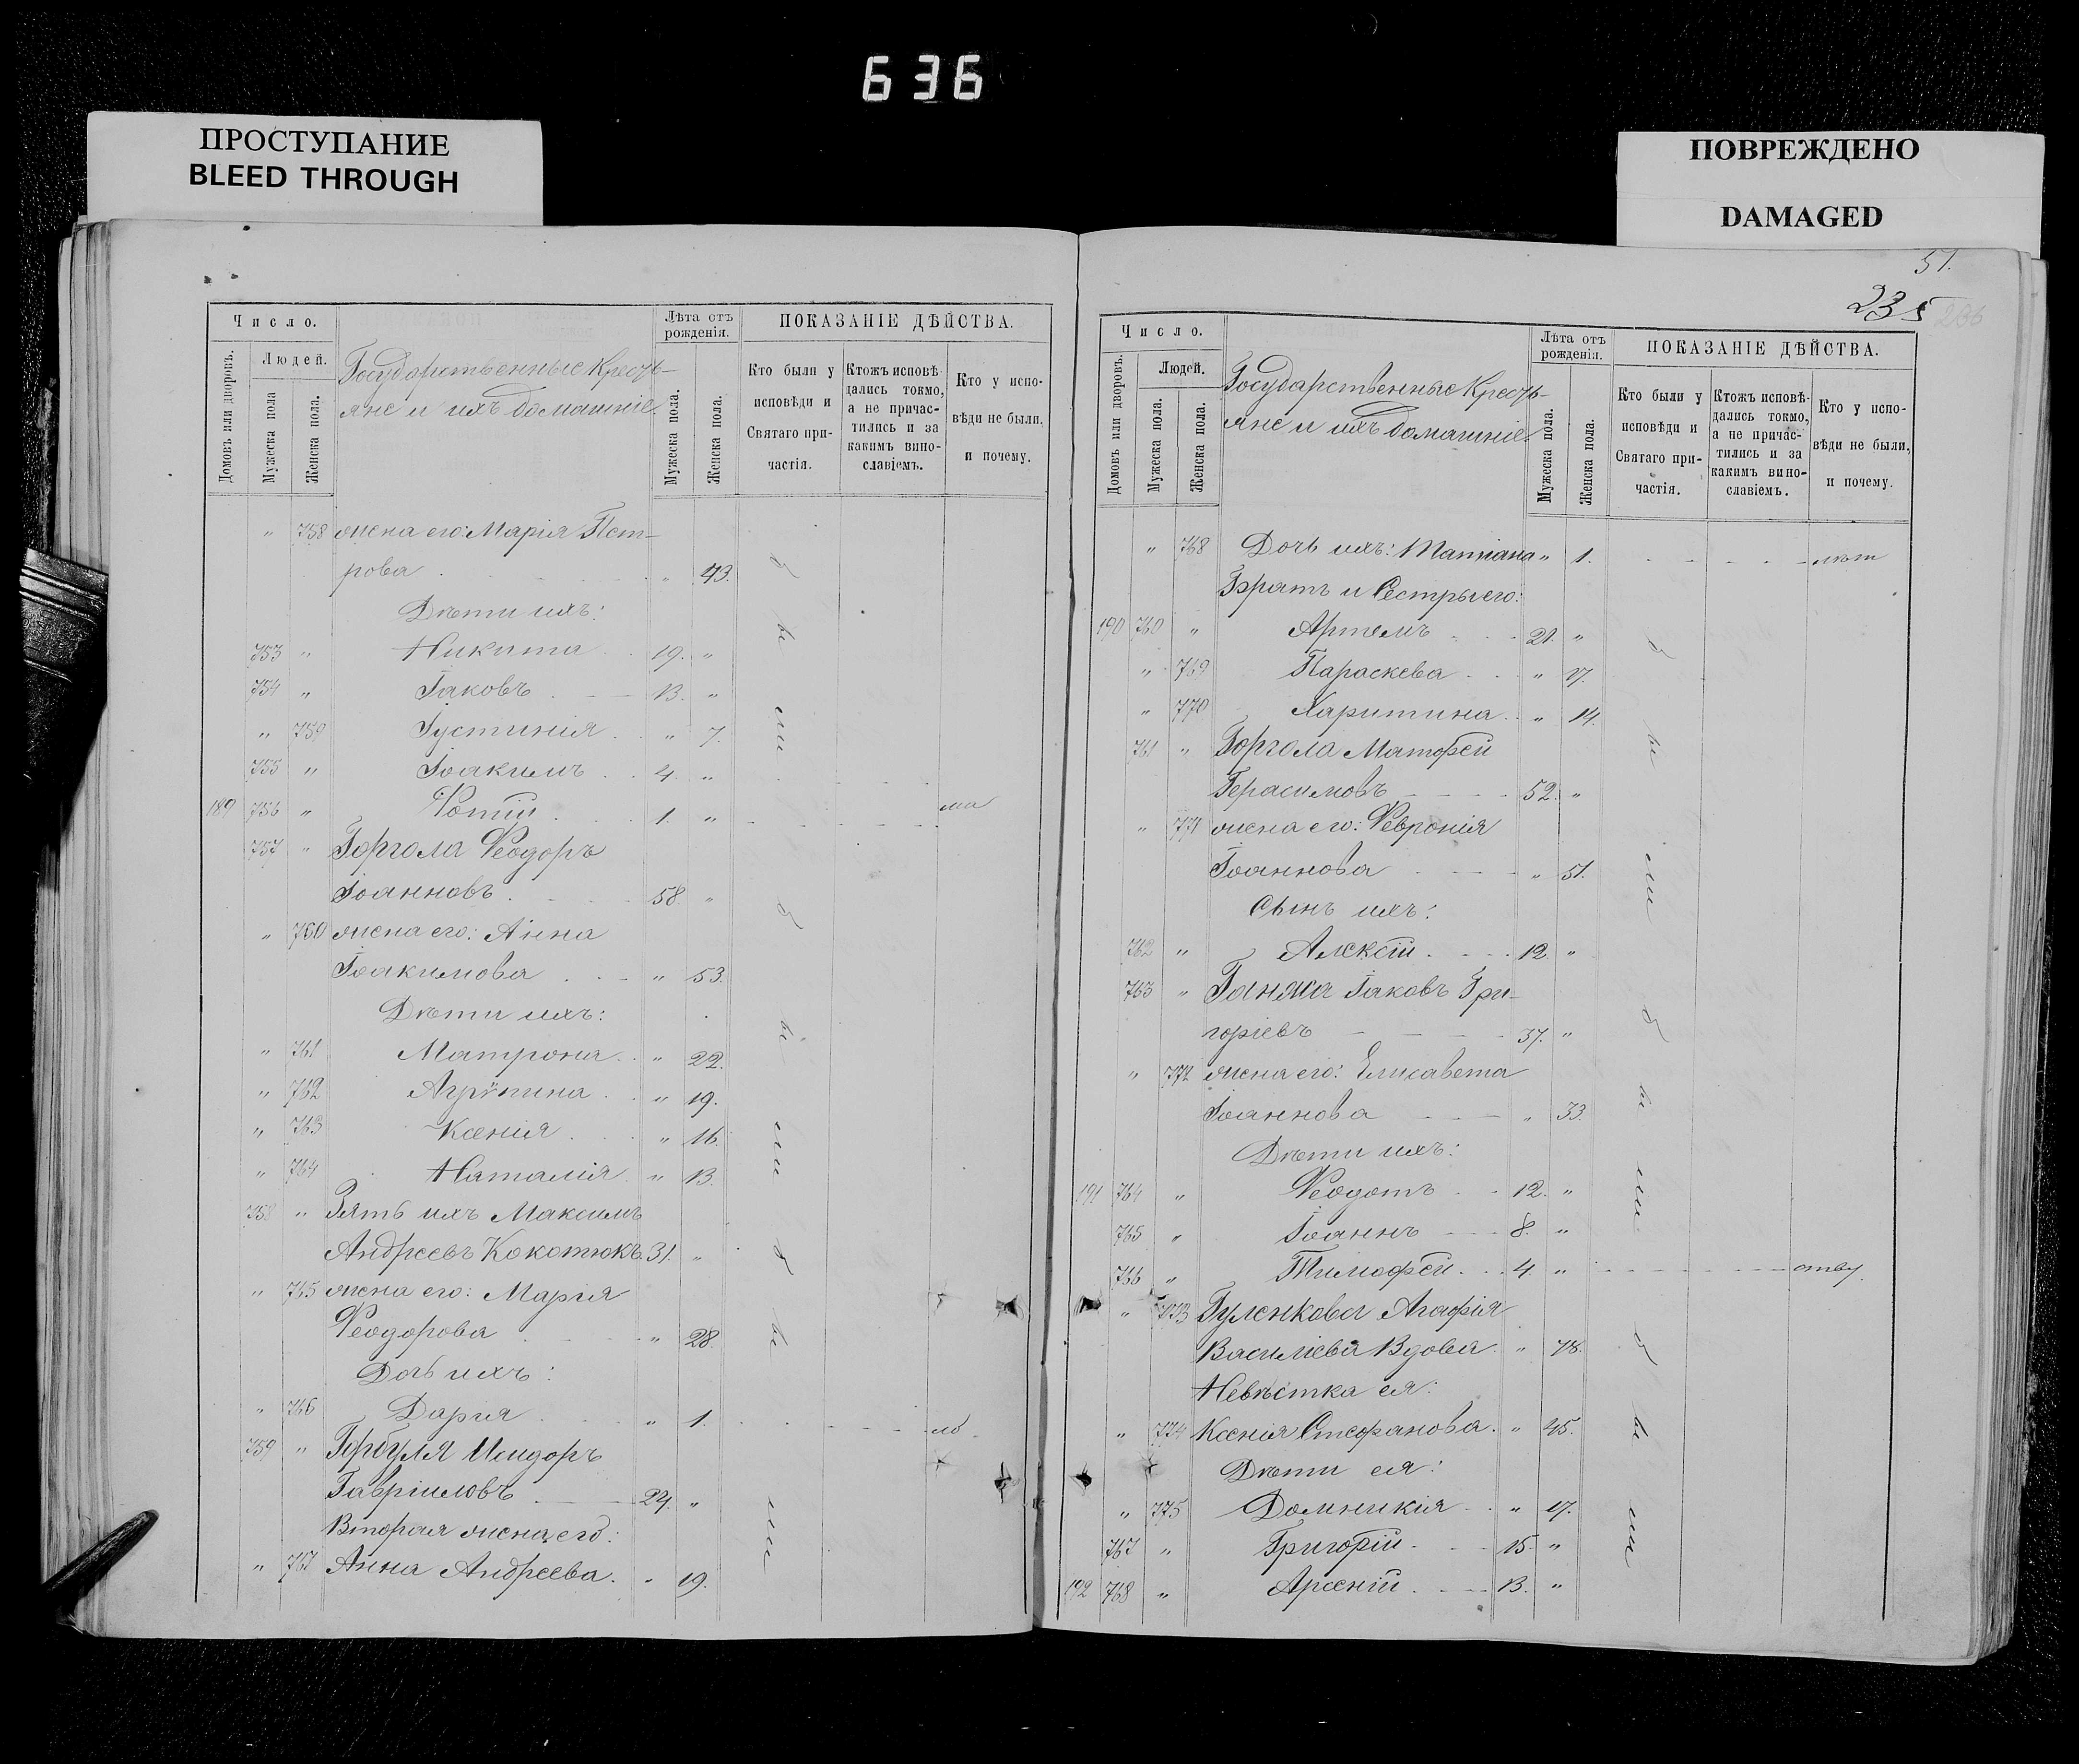 636
ПРОСТУПАНИЕ
BLEED THROUGH
ПОВРЕЖДЕНО
DAMAGED
51.
235
236
Число.
Людей.
Домовъ или дворовъ.
Мужеска пола
Женска пола.
Государственные Кресть-
яне и ихъ домашніе.
Лѣта отъ рожденія.
Мужеска пола.
Женска пола.
ПОКАЗАНІЕ ДѢЙСТВА.
Кто были у исповѣди и Святаго при-частія.
Ктожъ исповѣ-дались токмо, а не причас-тились и за какимъ вино-славіемъ.
Кто у испо-вѣди не были, и почему.
" 758 жена его: Марія Пет-
рова " 43.
Дѣти ихъ:
753 " Никита 19. "
754 " Іаковъ 13. "
" 759 Іустинія " 7.
755 " Іоакимъ 4. "
189 756 " Фотій 1. " ма
757 " Горгола Ѳеодоръ
Іоанновъ 58. "
" 760 жена его: Анна
Іоакимова " 53.
Дѣти ихъ:
" 761 Матрона " 22.
" 762 Агрипина " 19.
" 763 Ксенія " 16.
" 764 Наталія " 13.
758 " Зять ихъ Максимъ
Андреевъ Кокотюкъ 31. "
" 765 жена его: Марія
Ѳеодорова " 28.
Дочь ихъ:
" 766 Дарія " 1. ло
759 " Гарбуля Исидоръ
Гавріиловъ 24. "
Вторая жена его:
" 767 Анна Андреева " 19.
бы ли
бы ли
бы ли
Число.
Людей.
Домовъ или дворовъ.
Мужеска пола.
Женска пола.
Государственные Кресть-
яне и ихъ домашніе.
Лѣта отъ рожденія.
Мужеска пола.
Женска пола.
ПОКАЗАНІЕ ДѢЙСТВА.
Кто были у исповѣди и Святаго при-частія.
Ктожъ исповѣ-дались токмо, а не причас-тились и за какимъ вино-славіемъ.
Кто у испо-вѣди не были, и почему.
" 768 Дочь ихъ: Татіана " 1. лѣт
Братъ и Сестры его:
190 760 " Артемъ 21. "
" 769 Параскева " 17.
" 770 Харитина " 14.
761 " Горгола Матѳей
Герасимовъ 52. "
" 771 жена его: Февронія
Іоаннова " 51.
Сынъ ихъ:
762 " Алексій 12. "
763 " Ганжа Іаковъ Гри-
горіевъ 37. "
" 772 жена его: Елисавета
Іоаннова " 33.
Дѣти ихъ:
191 764 " Ѳеодотъ 12. "
765 " Іоаннъ 8. "
766 " Тимофей 4. " ству
" 773 Гуленкова Агафія
Василіева Вдова " 78.
Невѣстка ея:
" 774 Ксенія Стефанова " 45.
Дѣти ея:
" 775 Домникія " 17.
767 " Григорій 15. "
192 768 " Арсеній 13. "
бы ли
бы ли
бы ли